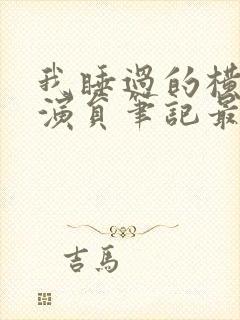 我睡過的橫
演員筆記最
吉馬